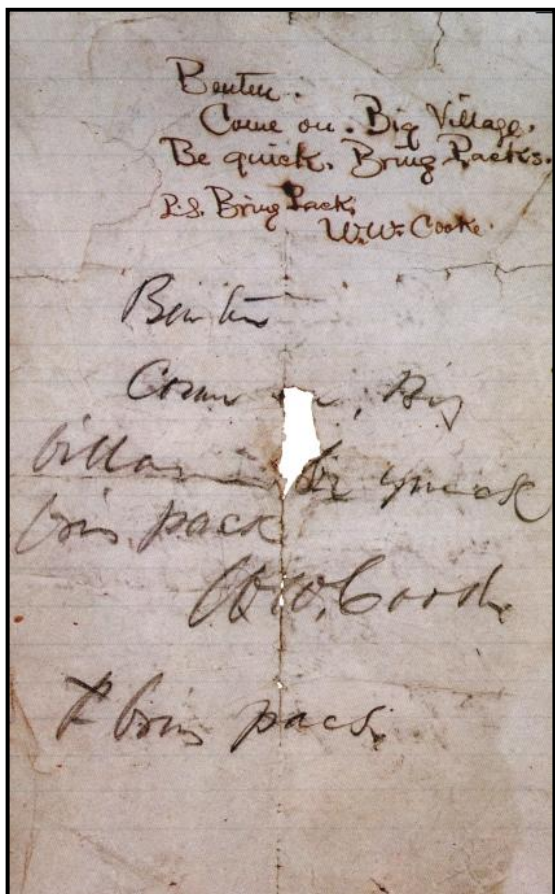 Benteen.
Come on. Big Village.
Be quick. Bring Packs.
P.S. Bring Packs.
W.W. Cooke.
Benteen
Come, Big
Village be quick
bring packs
W.W. Cooke
P bring pacs.